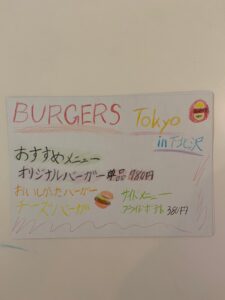 BURGERS Tokyo
in 下北沢
おすすめメニュー
オリジナルバーガー 単品 980円
おいしかたバーガー
チーズバーガー
サイトメニュー
フライドポテト 380円